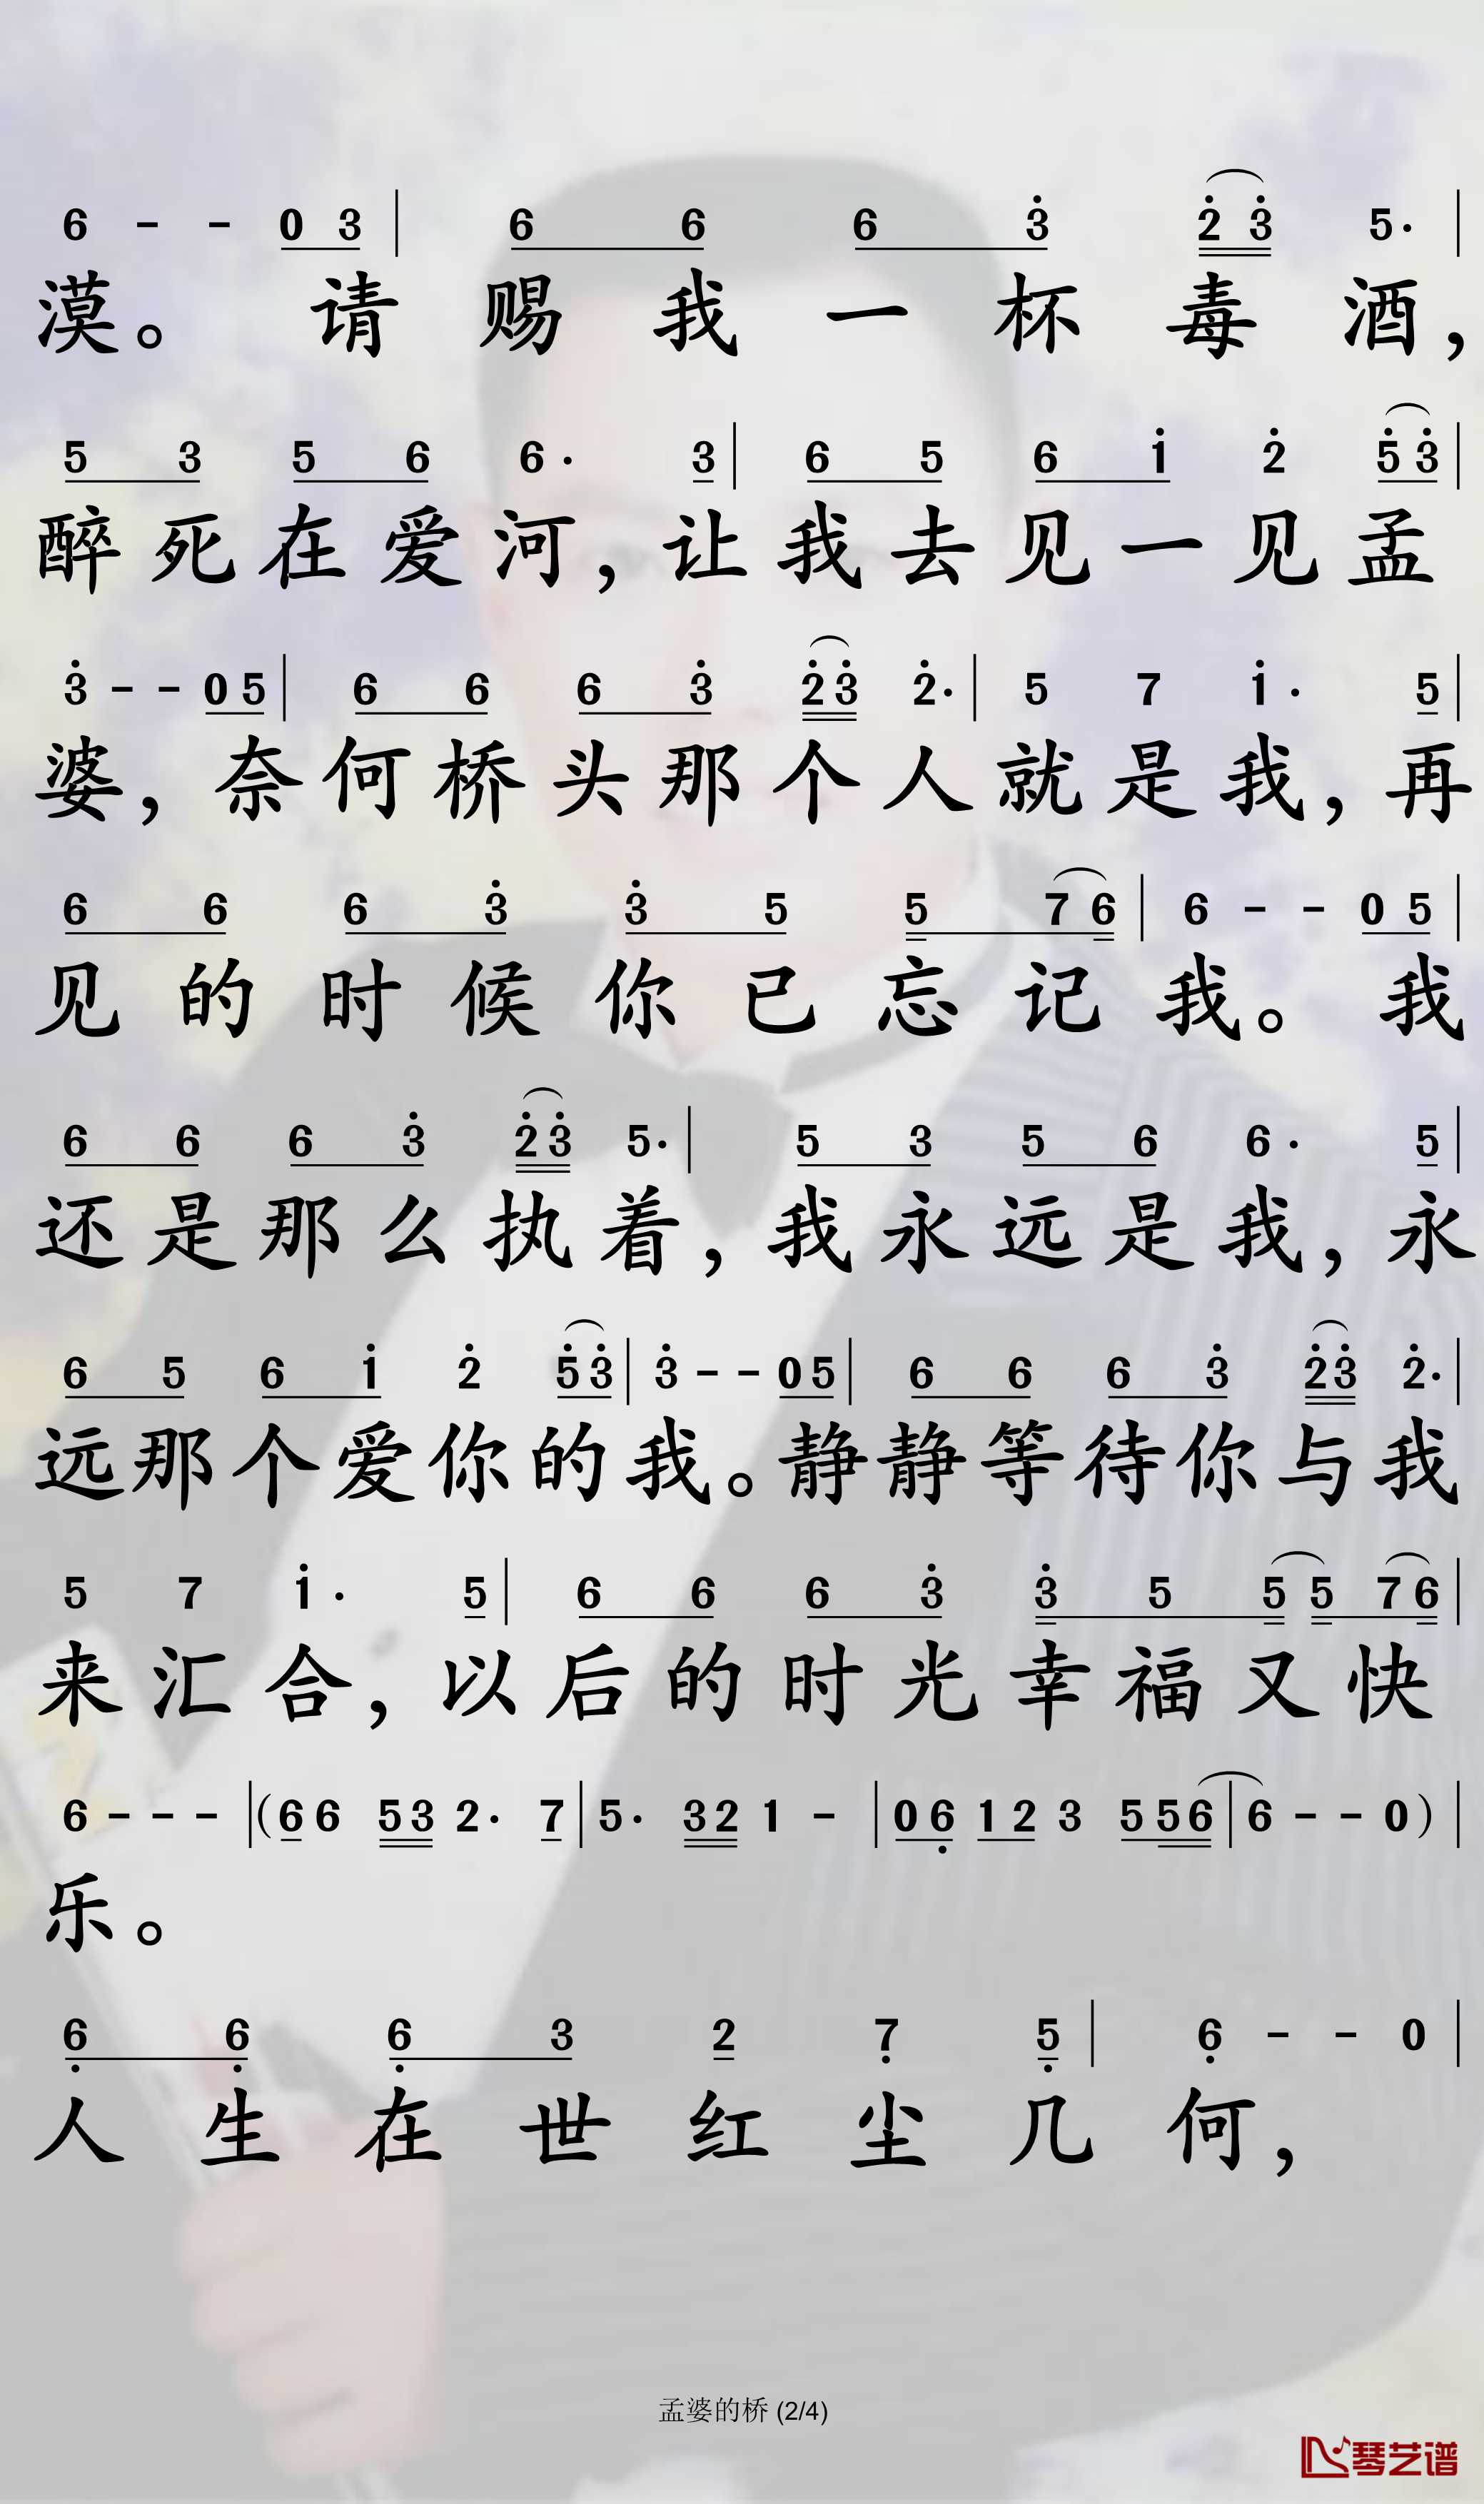 6 - - 0 3 | 6 6 6 3̇ 2̇ 3̇ 5. |
漠。请赐我一杯毒酒，
5 3 5 6 6. 3 | 6 5 6 1̇ 2̇ 5̇ 3̇ |
醉死在爱河，让我去见一见孟
3̇ - - 0 5 | 6 6 6 3̇ 2̇ 3̇ 2̇. | 5 7 1̇. 5 |
婆，奈何桥头那个人就是我，再
6 6 6 3̇ 3̇ 5 5 7 6 | 6 - - 0 5 |
见的时候你已忘记我。我
6 6 6 3̇ 2̇ 3̇ 5. | 5 3 5 6 6. 5 |
还是那么执着，我永远是我，永
6 5 6 1̇ 2̇ 5̇ 3̇ | 3̇ - - 0 5 | 6 6 6 3̇ 2̇ 3̇ 2̇. |
远那个爱你的我。静静等待你与我
5 7 1̇. 5 | 6 6 6 3̇ 3̇ 5 5 5 7 6 |
来汇合，以后的时光幸福又快
6 - - - | (6 6 5 3 2. 7 | 5. 3 2 1 - | 0 6̣ 1 2 3 5 5 6 | 6 - - 0) |
乐。
6̣ 6̣ 6̣ 3 2 7̣ 5̣ | 6̣ - - 0 |
人生在世红尘几何，
孟婆的桥 (2/4)
琴艺谱